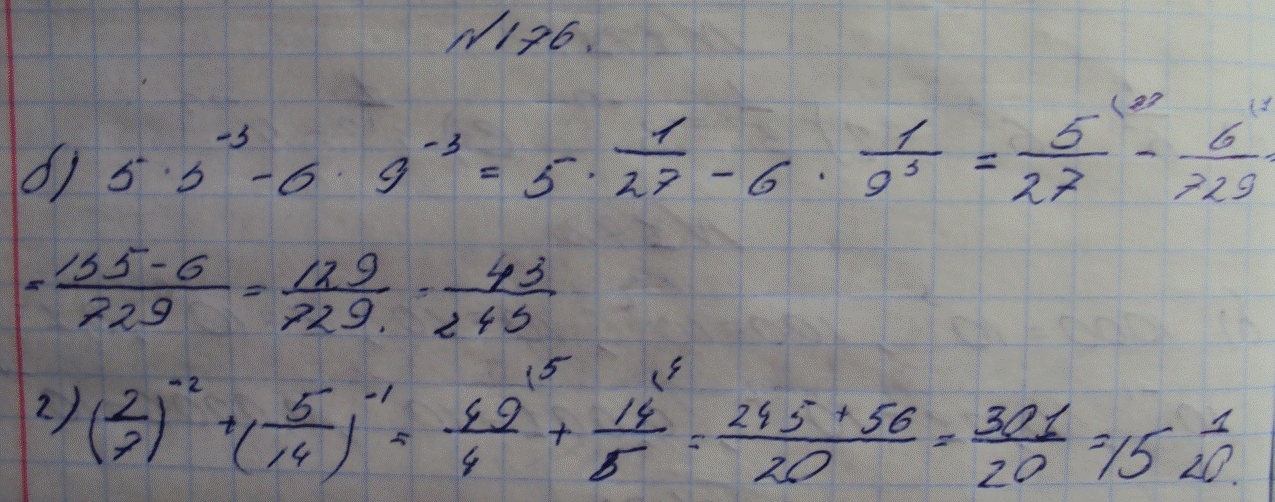 №176.
б) 5 · 3⁻³ - 6 · 9⁻³ = 5 · 1/27 - 6 · 1/9³ = 5/27 (27 - 6/729 (1 =
= 135-6/729 = 129/729. = 43/243
г) (2/7)⁻² + (5/14)⁻¹ = 49/4 (5 + 14/5 (4 = 245+56/20 = 301/20 = 15 1/20.